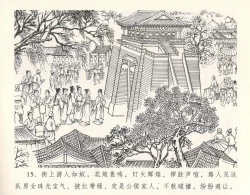 15. 街上游人如蚁，花炮轰鸣，灯火辉煌，锣鼓声喧。路人见这
队男女珠光宝气，披红带绿，定是公侯家人，不敢碰撞，纷纷避让。